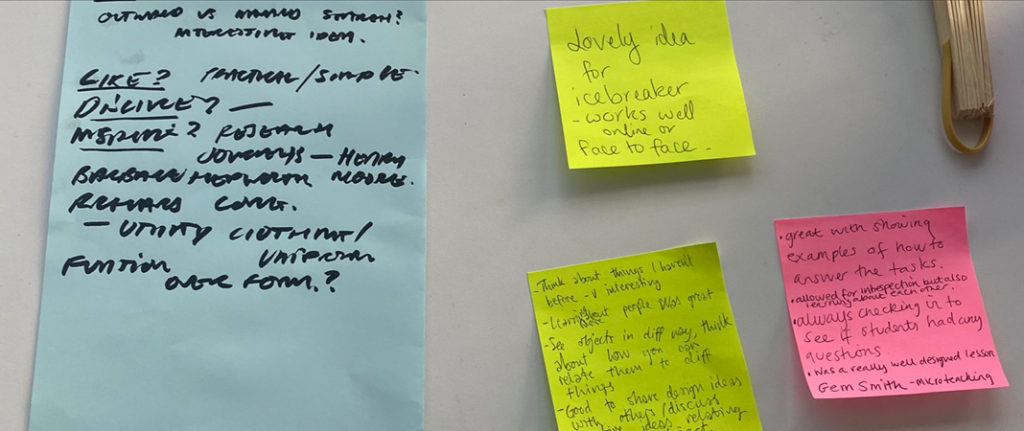 OUTWARD VS INWARD SEARCH?
INTERESTING IDEA.
LIKE? PRACTICAL/SIMPLE.
DISLIKE? —
? RESEARCH
JOURNEYS — HENRY
BARBARA HEPWORTH MOORE.
RICHARD LONG.
— UTILITY CLOTHING/
UNIFORM
FUNCTION
OVER FORM.?
Lovely idea
for
icebreaker
- works well
online or
face to face -
- Think about things I haven't
before - v interesting
- Learning about people was great
- See objects in diff way, think
about how you can
relate them to diff
things
- Good to share design ideas
with others/discuss
ideas relating
• great with showing
examples of how to
answer the tasks.
• allowed for introspection but also
learning about each other.
• always checking in to
see if students had any
questions
• was a really well designed lesson
Gem Smith - microteaching